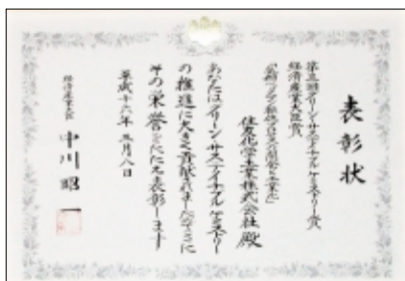 表彰状
第三回グリーン・サステイナブル ケミストリー賞
経済産業大臣賞
住友化学工業株式会社 殿
あなたはグリーン・サステイナブル ケミストリー
の推進に大きく貢献されましたのでここに
その栄誉をたたえ表彰します
平成十六年 三月八日
経済産業大臣
中川昭一